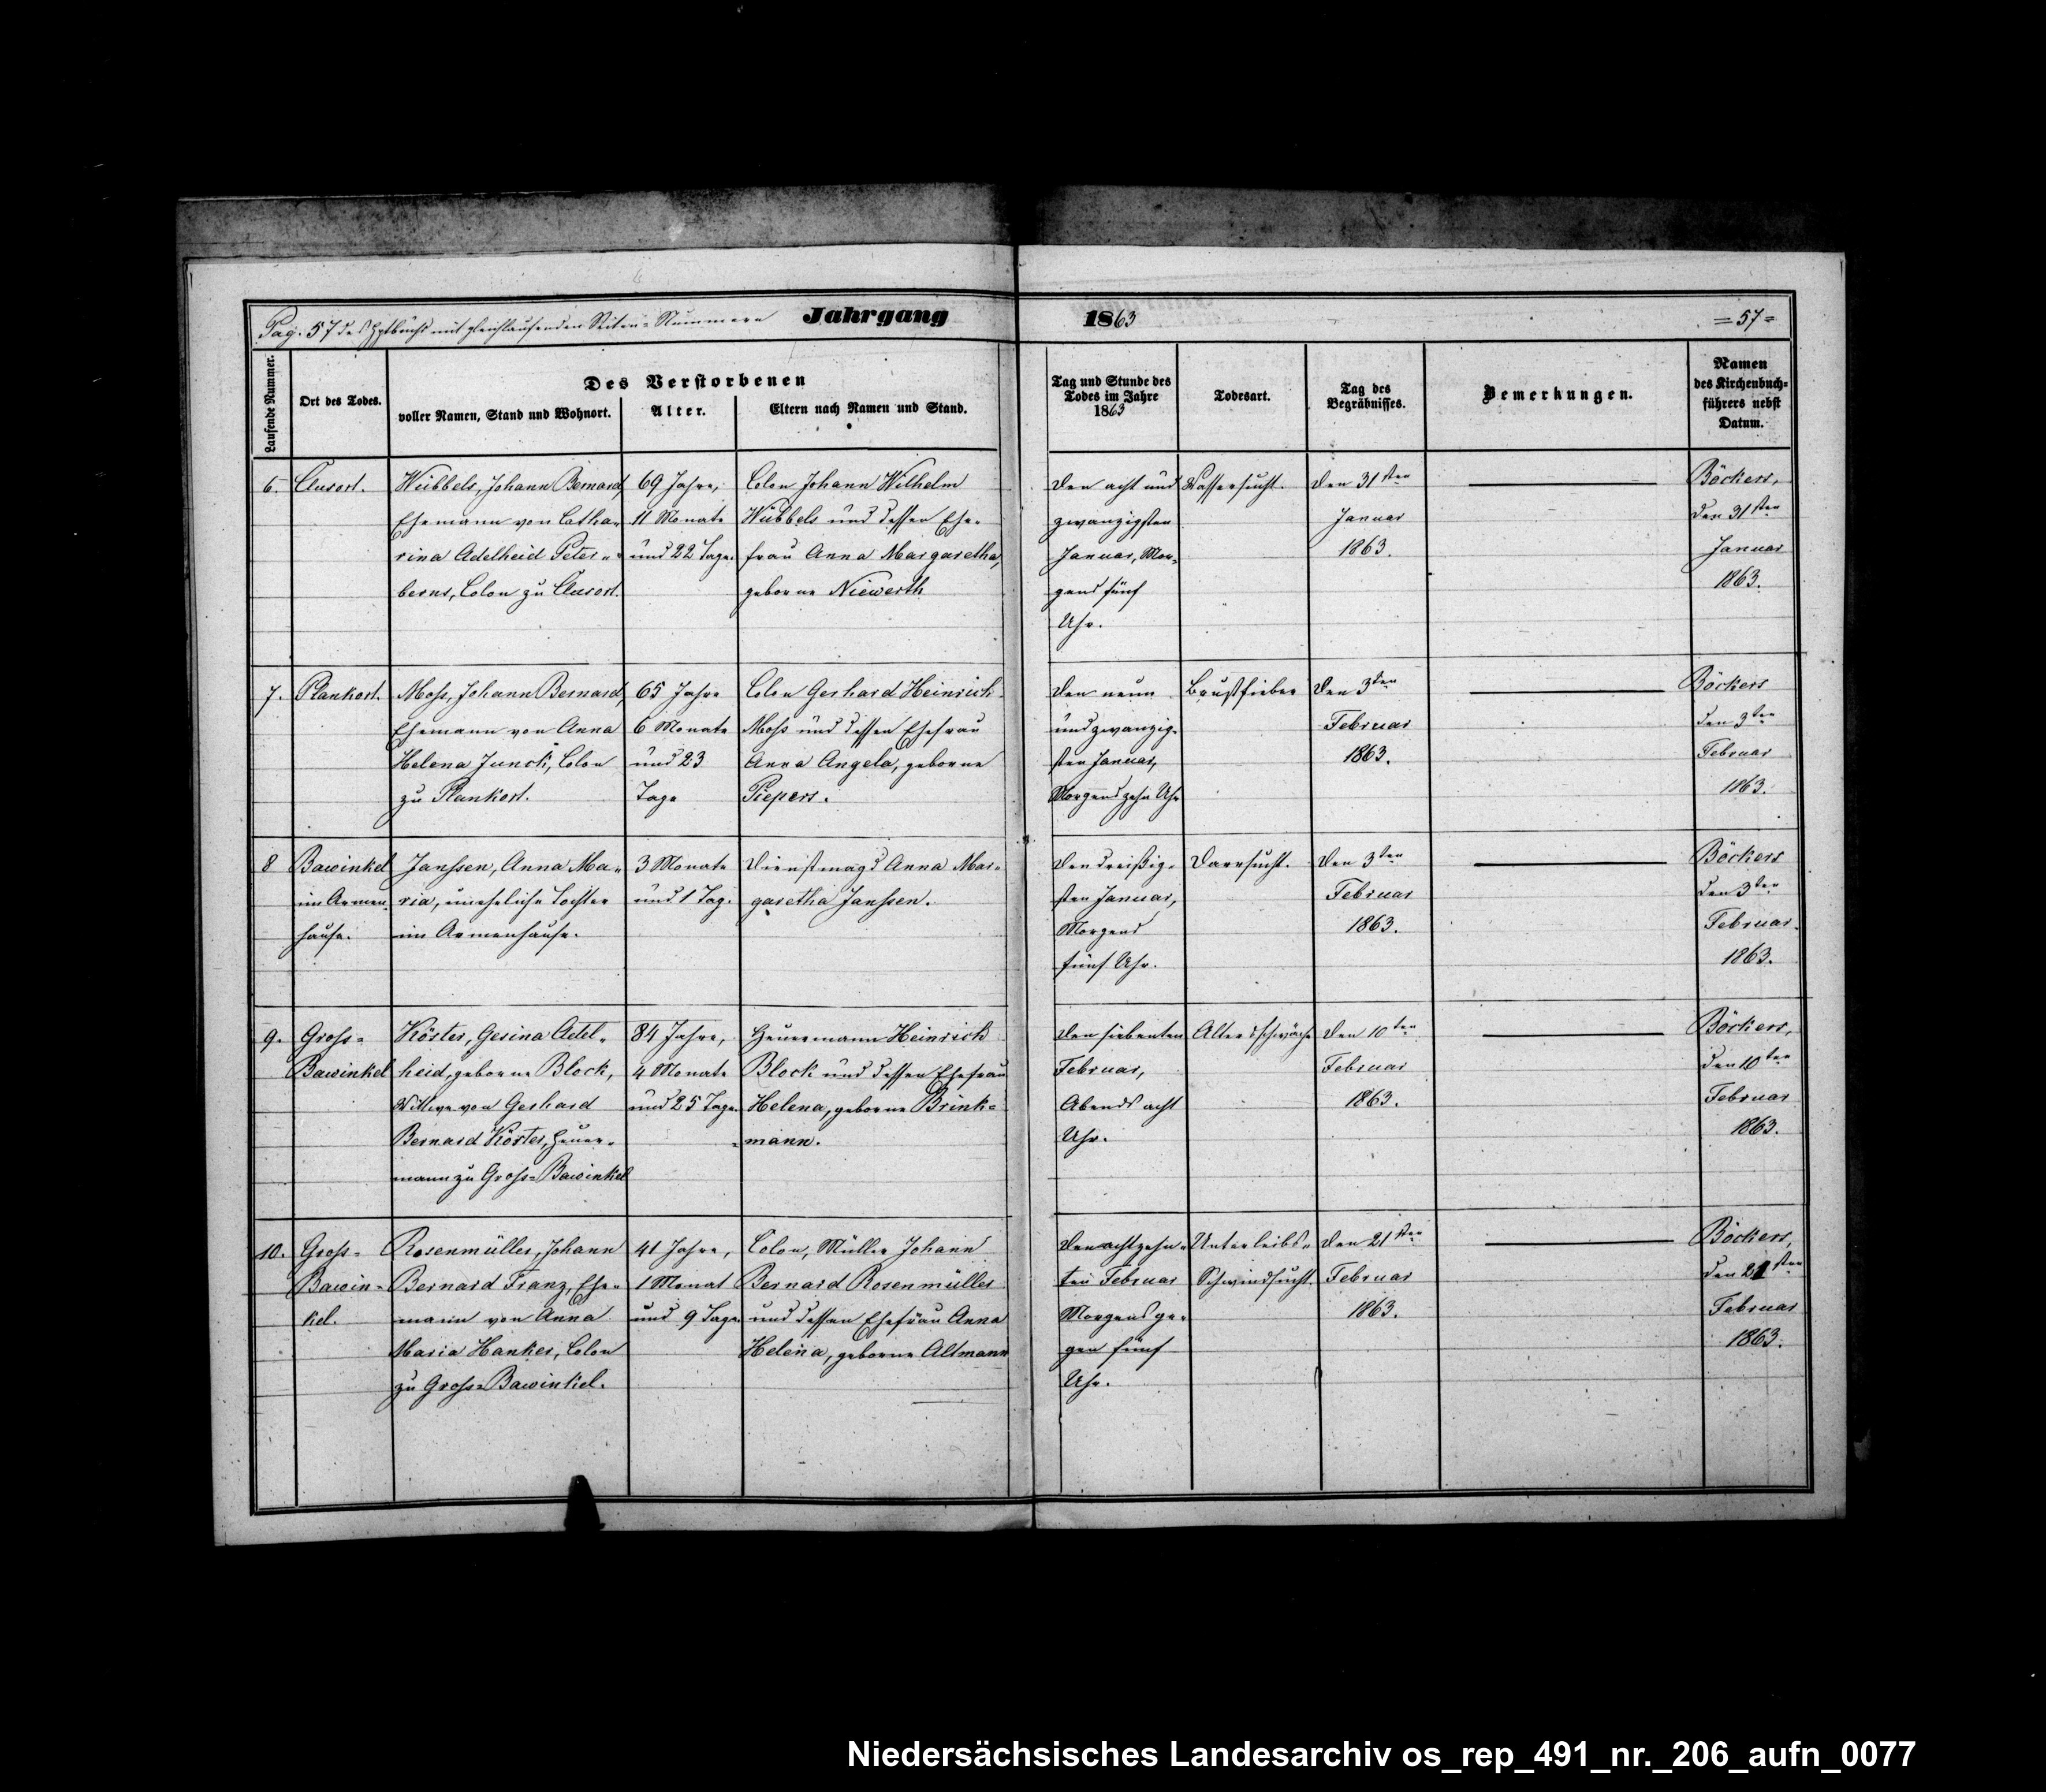 Pag. 57 des Hptbuchs mit gleichlaufenden Seiten-Nummern
Jahrgang
1863
= 57 =
Laufende Nummer.
Ort des Todes.
Des Verstorbenen
voller Namen, Stand und Wohnort.
Alter.
Eltern nach Namen und Stand.
Tag und Stunde des
Todes im Jahre
1863
Todesart.
Tag des
Begräbnisses.
Bemerkungen.
Namen
des Kirchenbuch-
führers nebst
Datum.
6.
Clusort.
Wübbels, Johann Bernard,
Ehemann von Catha-
rina Adelheid Peter-
berns, Colon zu Clusort.
69 Jahre,
11 Monate
und 22 Tage.
Colon Johann Wilhelm
Wübbels und dessen Ehe-
frau Anna Margaretha,
geborne Niewerth
Den acht und
zwanzigsten
Januar, Mor-
gens fünf
Uhr.
Wassersucht.
Den 31sten
Januar
1863.
Böckers,
den 31sten
Januar
1863.
7.
Plankort.
Moß, Johann Bernard,
Ehemann von Anna
Helena Junck, Colon
zu Plankort.
65 Jahre
6 Monate
und 23
Tage
Colon Gerhard Heinrich
Moß und dessen Ehefrau
Anna Angela, geborne
Piepers.
Den neun
undzwanzig-
sten Januar,
Morgens zehn Uhr
Brustfieber
Den 3ten
Februar
1863.
Böckers
den 3ten
Februar
1863.
8
Bawinkel
im Armen-
hause.
Janßen, Anna Ma-
ria, uneheliche Tochter
im Armenhause.
3 Monate
und 1 Tag.
Dienstmagd Anna Mar-
garetha Janßen.
Den dreißig-
sten Januar,
Morgens
fünf Uhr.
Darrsucht.
Den 3ten
Februar
1863.
Böckers
den 3ten
Februar
1863.
9.
Gross-
Bawinkel
Köster, Gesina Adel-
heid, geborne Block,
Wittwe von Gerhard
Bernard Köster, Heuer-
mann zu Groß-Bawinkel
84 Jahre,
4 Monate
und 25 Tage.
Heuermann Heinrich
Block und dessen Ehefrau
Helena, geborne Brink-
-mann.
Den siebenten
Februar,
Abends acht
Uhr.
Altersschwäche
Den 10ten
Februar
1863.
Böckers,
den 10ten
Februar
1863.
10.
Gross-
Bawin-
kel.
Rosenmüller, Johann
Bernard Franz, Ehe-
mann von Anna
Maria Hanker, Colon
zu Groß-Bawinkel.
41 Jahre,
1 Monat
und 9 Tage.
Colon, Müller Johann
Bernard Rosenmüller
und dessen Ehefrau Anna
Helena, geborne Altmann
Den achtzehn-
ten Februar
Morgens ge-
gen fünf
Uhr.
Unterleibs-
Schwindsucht.
Den 21sten
Februar
1863.
Böckers,
den 21sten
Februar
1863.
Niedersächsisches Landesarchiv os_rep_491_nr._206_aufn_0077